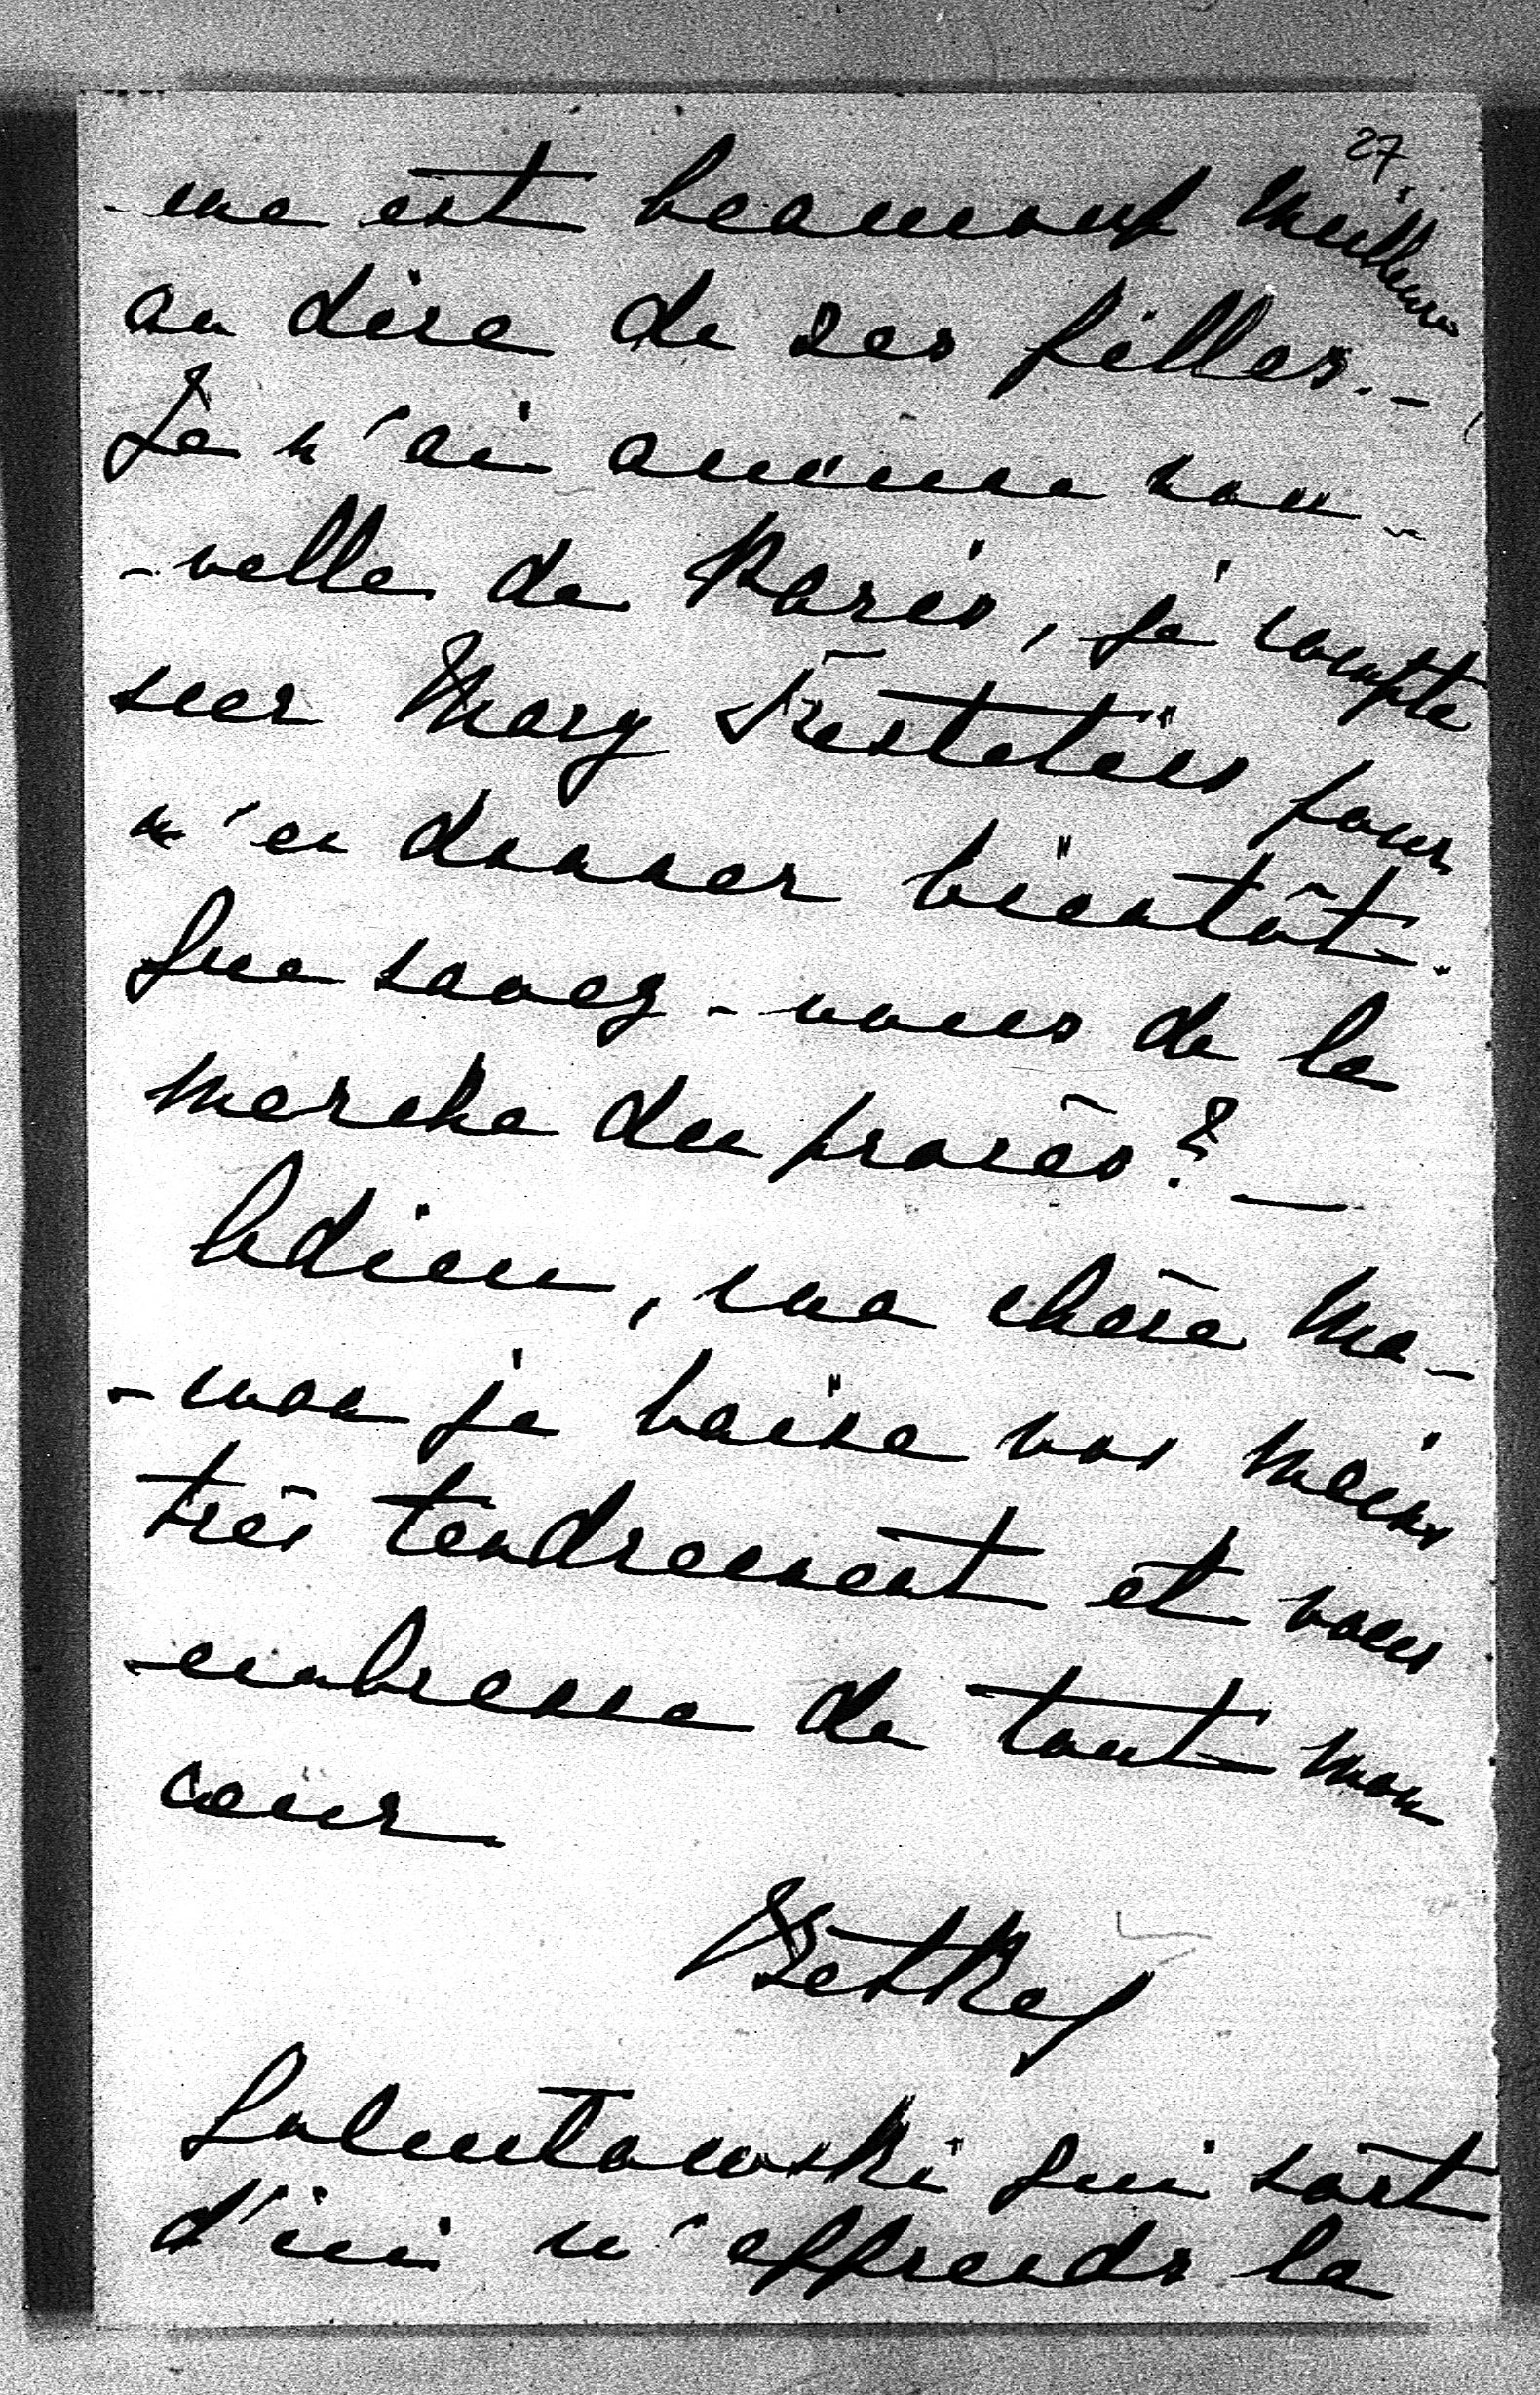 27.
-me est beaucoup meilleure
au dire de ses filles. -
Je n'ai aucune nou-
-velle de Paris, je compte
sur Mary pour
m'en donner bientôt.
Que savez-vous de la
marche du procès? —
Adieu, ma chère Ma-
-man je baise vos mains
très tendrement et vous
embrasse de tout mon
cœur

qui sort
d'ici m'apprends la